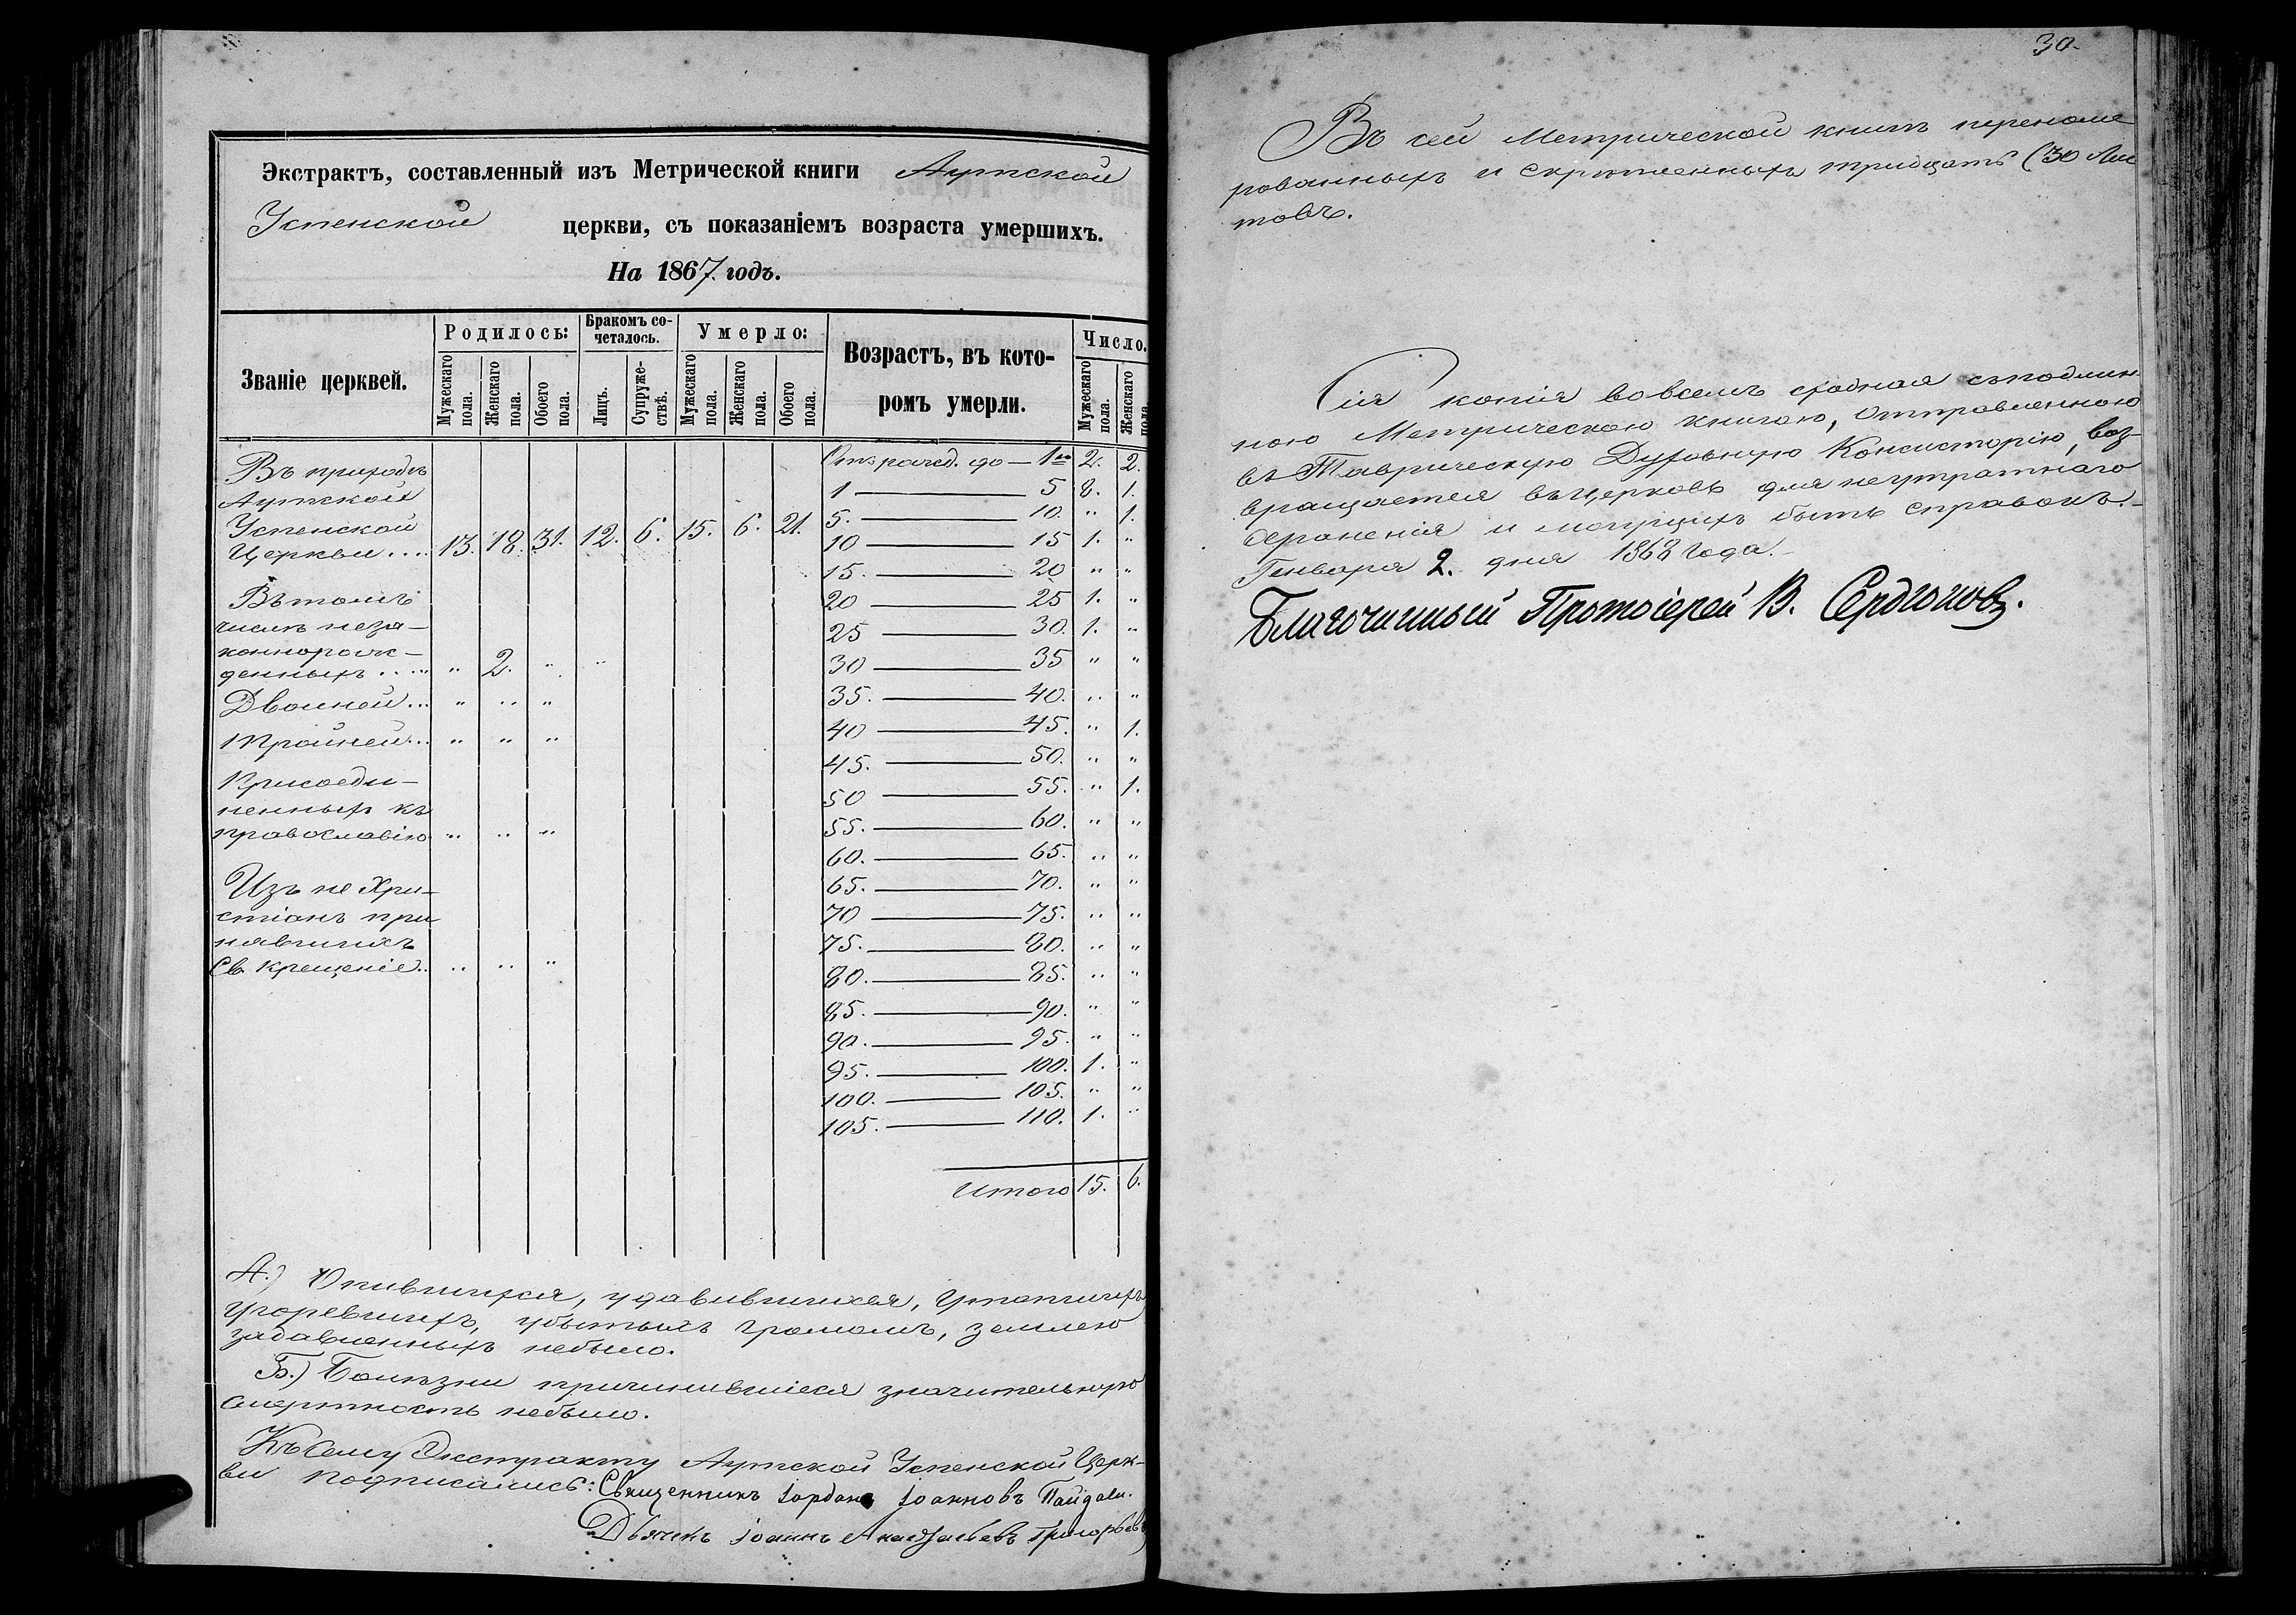 Экстрактъ, составленный изъ Метрической книги Аутской
Успенской церкви, съ показаніемъ возраста умершихъ.
На 1867. годъ.
Званіе церквей. Родилось: Бракомъ со-четалось. Умерло: Возрастъ, въ кото-ромъ умерли. Число.
Мужескаго пола. Женскаго пола. Обоего пола. Лицъ. Супруже-ствъ. Мужескаго пола. Женскаго пола. Обоего пола. Мужескаго пола. Женскаго пола.
Въ приходѣ
Аутской
Успенской
Церкви .... 13. 18. 31. 12. 6. 15. 6. 21.
Въ томъ
числѣ неза-
коннорож-
денныхъ .... " 2. " "
Двойней... " " "
Тройней... " " "
Присоеди-
ненныхъ къ
православію " " "
Изъ не Хри-
стіанъ при
нявшихъ
Св. Крещеніе.. " " "
Отъ рожд. до — 1го 2. 2.
1 — 5 8. 1.
5. — 10. " 1.
10 — 15 1. "
15. — 20 " "
20 — 25 1. "
25 — 30. 1. "
30 — 35 " "
35. — 40. " "
40 — 45. " 1.
45. — 50. " "
50 — 55. " 1.
55. — 60. " "
60. — 65. " "
65. — 70. " "
70 — 75. " "
75. — 80. " "
80. — 85. " "
85. — 90. " "
90. — 95. " "
95. — 100. 1. "
100. — 105. " "
105. — 110. 1. "
Итого 15. 6.
А.) Опившихся, удавившихся, утопшихъ
угоревшихъ, убытыхъ громомъ, землею
задавленныхъ небыло.
Б.) Болѣзни причинившіеся значительную
смертность небыло.
Къ сему Экстракту Аутской Успенской Церк-
ви подписались: Священникъ Іорданъ Іоанновъ
Дьячекъ Іоаннъ Григорьевъ
30.
Въ сей Метрической книгѣ перенуме
рованныхъ и скрѣпленныхъ тридцать (30 Лис
товъ.
Сія копія вовсемъ сходная съподлин
ною Метрическою книгою, отправленною
въ Таврическую Духовную Консисторію, воз-
вращается въцерковь для неутратнаго
храненія и могущихъ быть справокъ.-
Генваря 2. дня 1868 Года.-
Благочинный Протоіерей В. Сердюковъ.